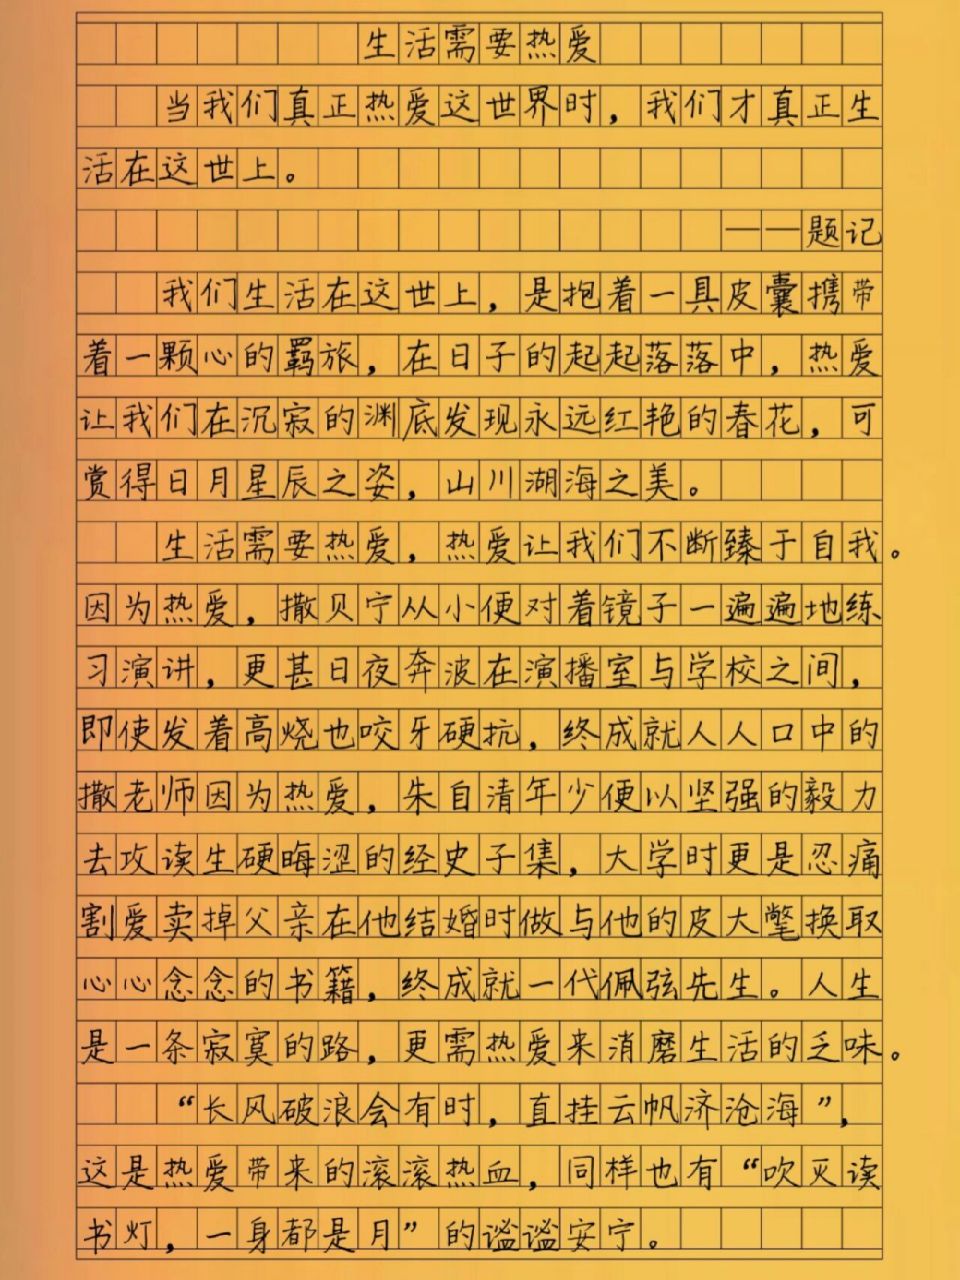 生活需要热爱
当我们真正热爱这世界时，我们才真正生
活在这世上。
——题记
我们生活在这世上，是抱着一具皮囊携带
着一颗心的羁旅，在日子的起起落落中，热爱
让我们在沉寂的渊底发现永远红艳的春花，可
赏得日月星辰之姿，山川湖海之美。
生活需要热爱，热爱让我们不断臻于自我。
因为热爱，撒贝宁从小便对着镜子一遍遍地练
习演讲，更甚日夜奔波在演播室与学校之间，
即使发着高烧也咬牙硬抗，终成就人人口中的
撒老师因为热爱，朱自清年少便以坚强的毅力
去攻读生硬晦涩的经史子集，大学时更是忍痛
割爱卖掉父亲在他结婚时做与他的皮大氅换取
心心念念的书籍，终成就一代佩弦先生。人生
是一条寂寞的路，更需热爱来消磨生活的乏味。
“长风破浪会有时，直挂云帆济沧海”，
这是热爱带来的滚滚热血，同样也有“吹灭读
书灯，一身都是月”的谧谧安宁。